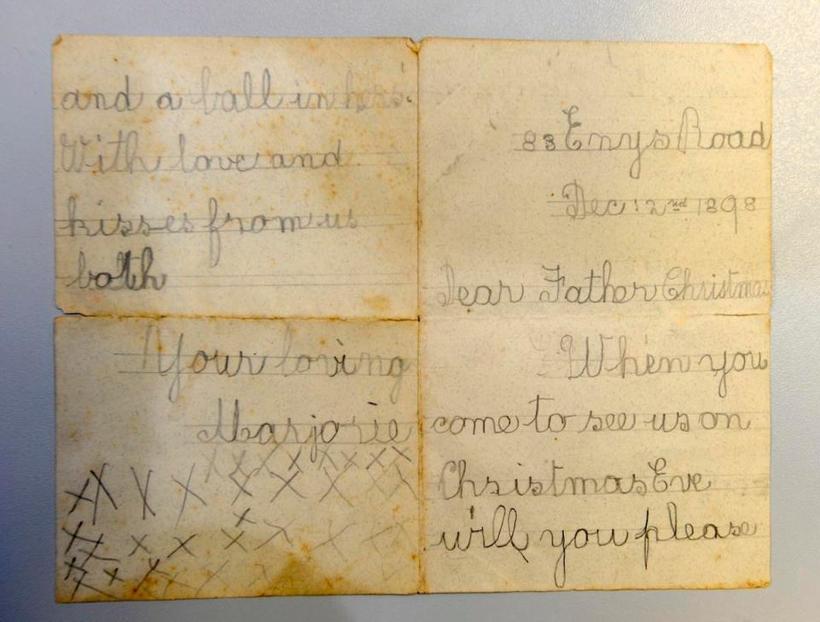 83 Enys Road
Dec: 2nd 1898
Dear Father Christmas
When you
come to see us on
Christmas Eve
will you please
and a ball in hers.
With love and
kisses from us
both
Your loving
Marjorie
X X X X X X X X
X X X X X X X X X
X
X X X X X X X X X
X X X X X X X X X